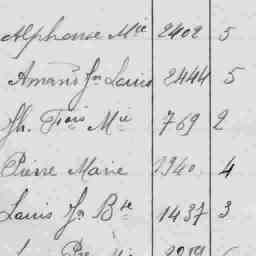 Alphonse Mie 2402 5
Amans Jn Louis 2444 5
Jh. Frois Mie 769 2
Pierre Marie 1940 4
Louis Jn Bte 1437 3